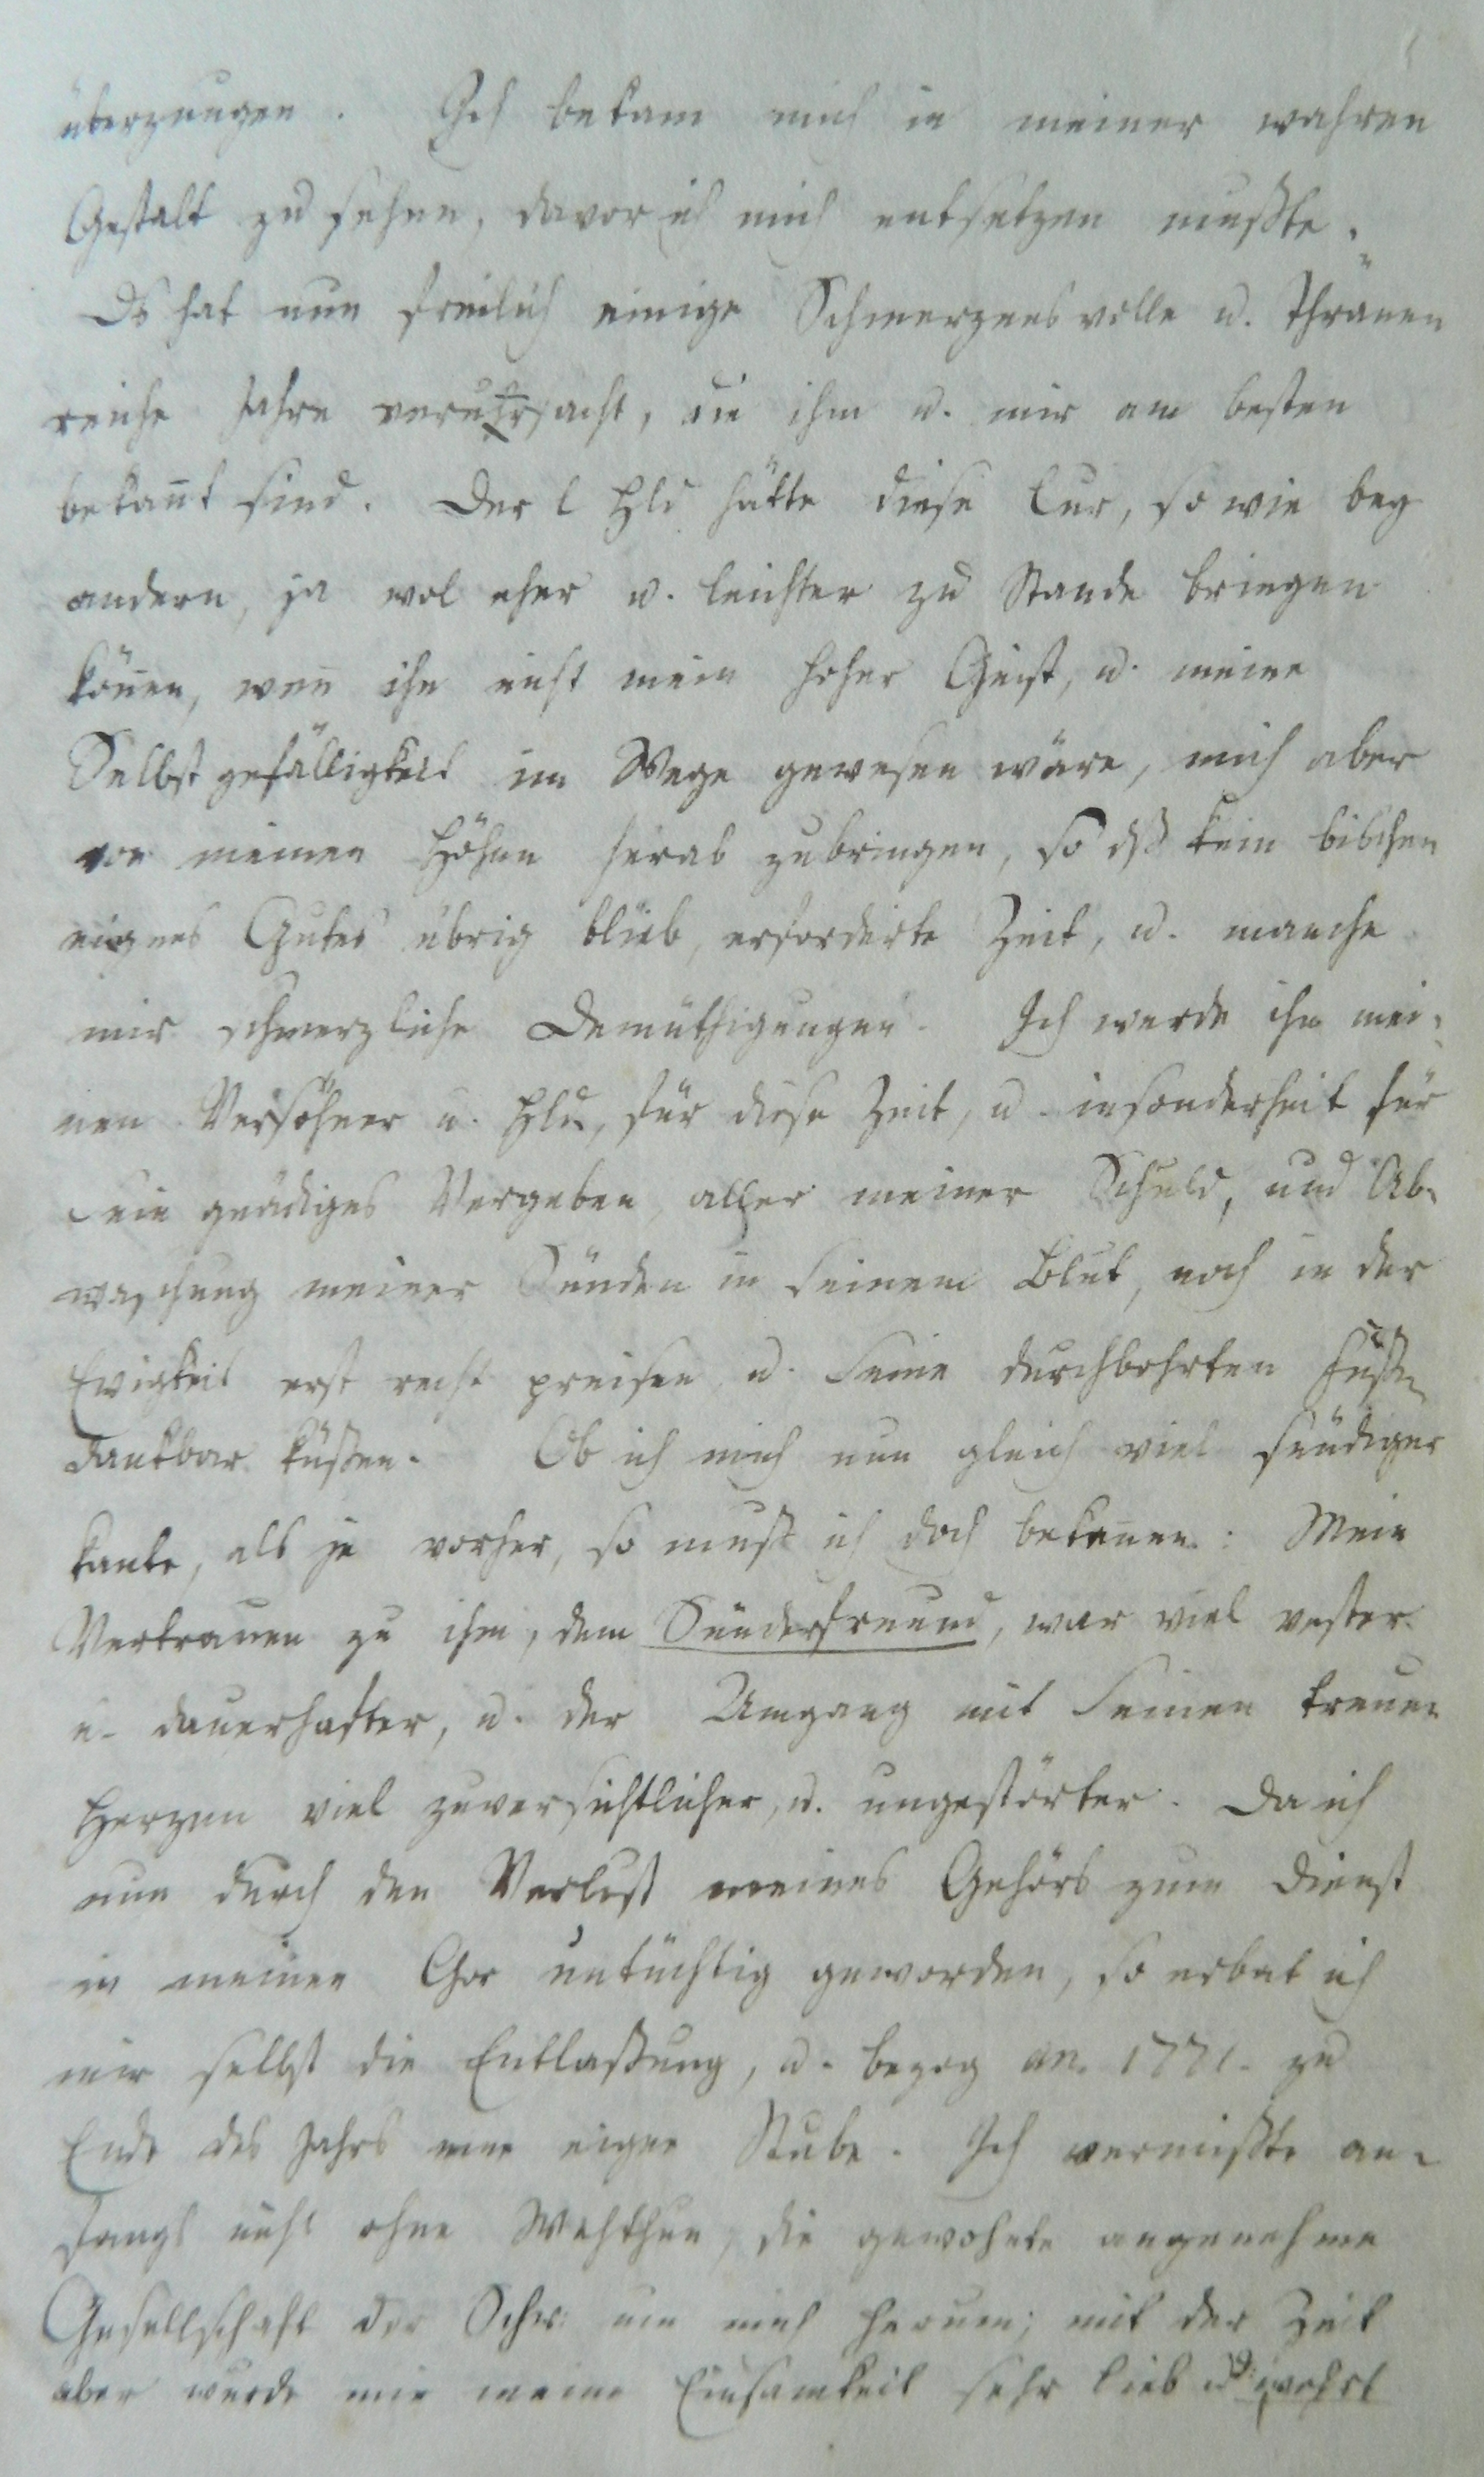 überzeugen. Ich bekam mich in meiner wahren
Gestalt zu sehen, davor ich mich entsetzen mußte.
Ds hat nun freilich einige Schmerzensvolle u. Thränen
reiche Jahre verursacht, die ihm u. mir am besten
bekañt sind. Der l Hld hätte diese Cur, so wie bey
andern, ja wol eher u. leichter zu Stande bringen
köñen, weñ ihn nicht mein hoher Geist, u. meine
Selbstgefälligkeit im Wege gewesen wäre, mich aber
von meinen Höhen herab zubringen, so dß kein bischen
eignes Gutes übrig blieb, erforderte Zeit, u. manche
mir schmerzliche Demüthigungen. Ich werde ihn mei-
nen Versöhner u. Hld, für diese Zeit, u. insonderheit für
sein gnädiges Vergeben, aller meiner Schuld, und Ab-
waschung meiner Sünden in seinem Blut, noch in der
Ewigkeit erst recht preisen u. seine durchbohrten Füße
dankbar küßen. Ob ich mich nun gleich viel sündiger
kante, als je vorher, so muß ich doch bekeñen: Mein
Vertrauen zu ihm, dem Sünderfreund, war viel vester
u. dauerhafter, u. der Umgang mit seinen treuen
Herzen viel zuversichtlicher, u. ungestörter. Da ich
nun durch den Verlust meines Gehörs zum Dienst
in meinen Chor untüchtig geworden, so erbat ich
mir selbst die Entlaßung, u. bezog an. 1771. zu
Ende des Jahrs eine eigne Stube. Ich vermißte an-
fangs nicht ohne Wehthun, die gewohnte angenehme
Gesellschaft der Schw: um mich herum; mit der Zeit
aber wurde mir meine Einsamkeit sehr lieb ud: wehrt